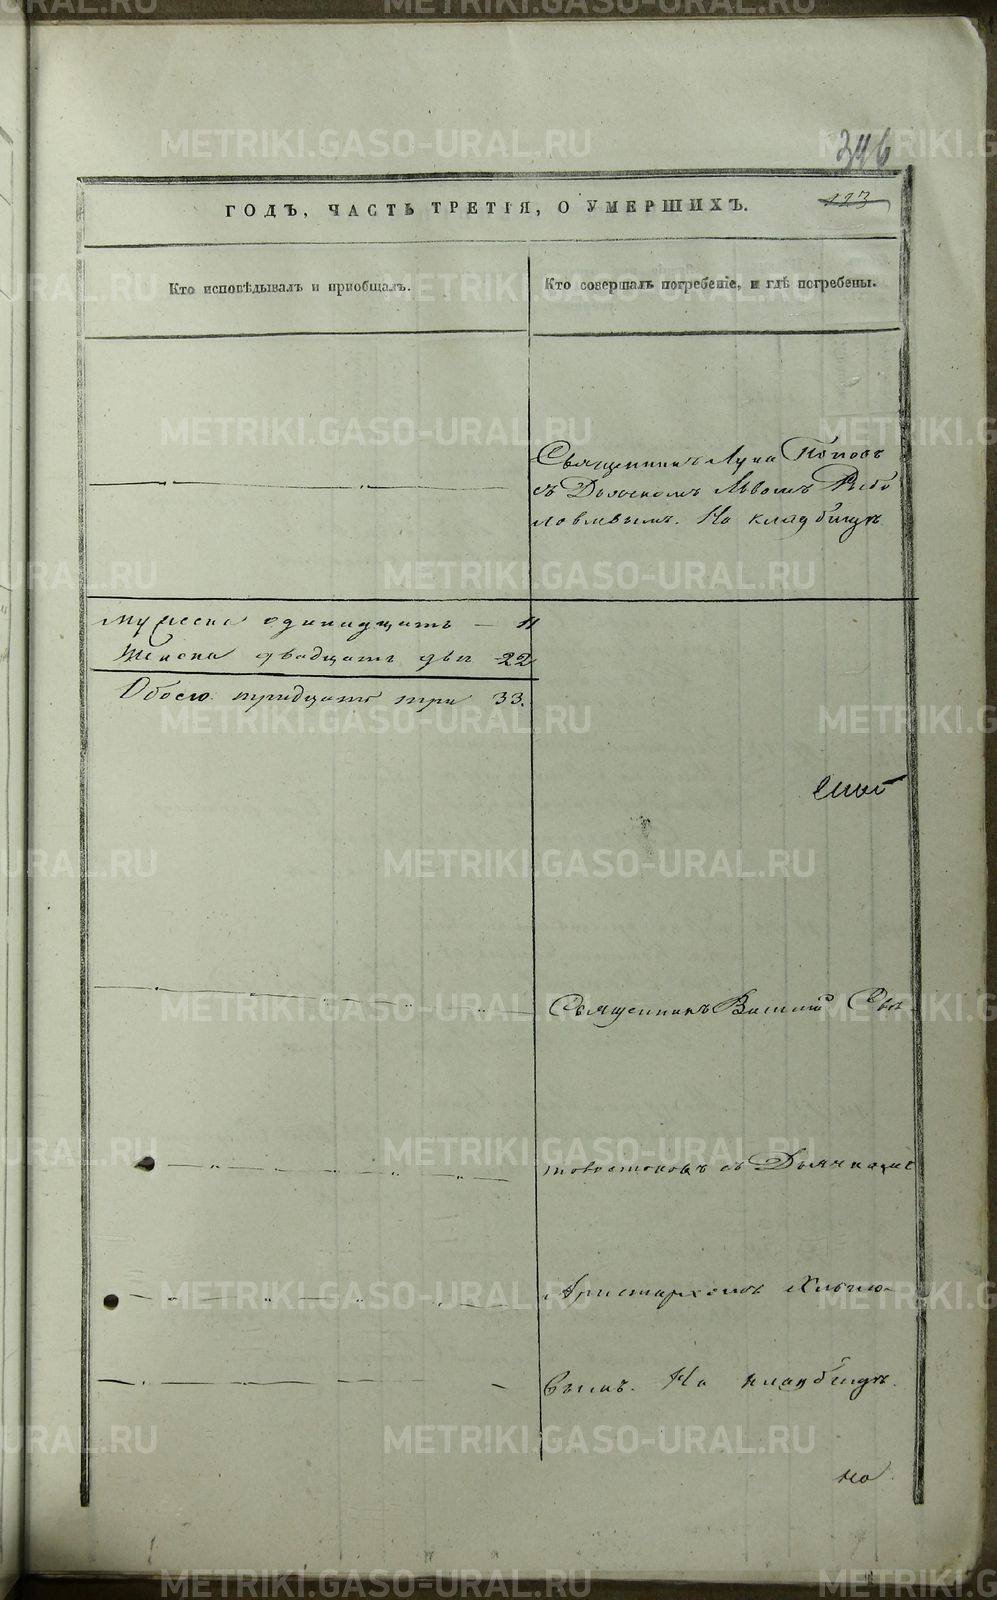 346
ГОДЪ, ЧАСТЬ ТРЕТІЯ, О УМЕРШИХЪ.
123
Кто исповѣдывалъ и пріобщалъ.
Кто совершалъ погребеніе, и гдѣ погребены.
Священникъ Лука Поповъ
съ Дьякономъ Львомъ Рыбо
ловлевымъ. На кладбищѣ
Мужеска одинадцать — 11
Женска двадцать два 22
Обоего тридцать три 33.
Священникъ Василій Свѣ-
товостоковъ съ Дьячкомъ
Аристархомъ
вымъ. На кладбищѣ.
на
METRIKI.GASO-URAL.RU